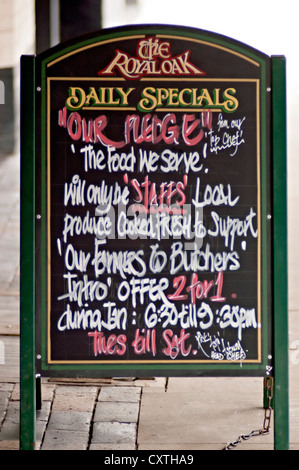 The
ROYAL OAK
DAILY SPECIALS
"OUR PLEDGE" from our
Top Chef
'The Food We Serve'!
will only be "STAFFS" Local
produce Cooked FRESH to Support
'Our Farmers to Butchers
Intro' OFFER 2 for 1.
during Jan : 6·30 till 9·30pm
Tues till Sat.
HEAD CHEF
alamy
Image ID: CXTHA9
www.alamy.com